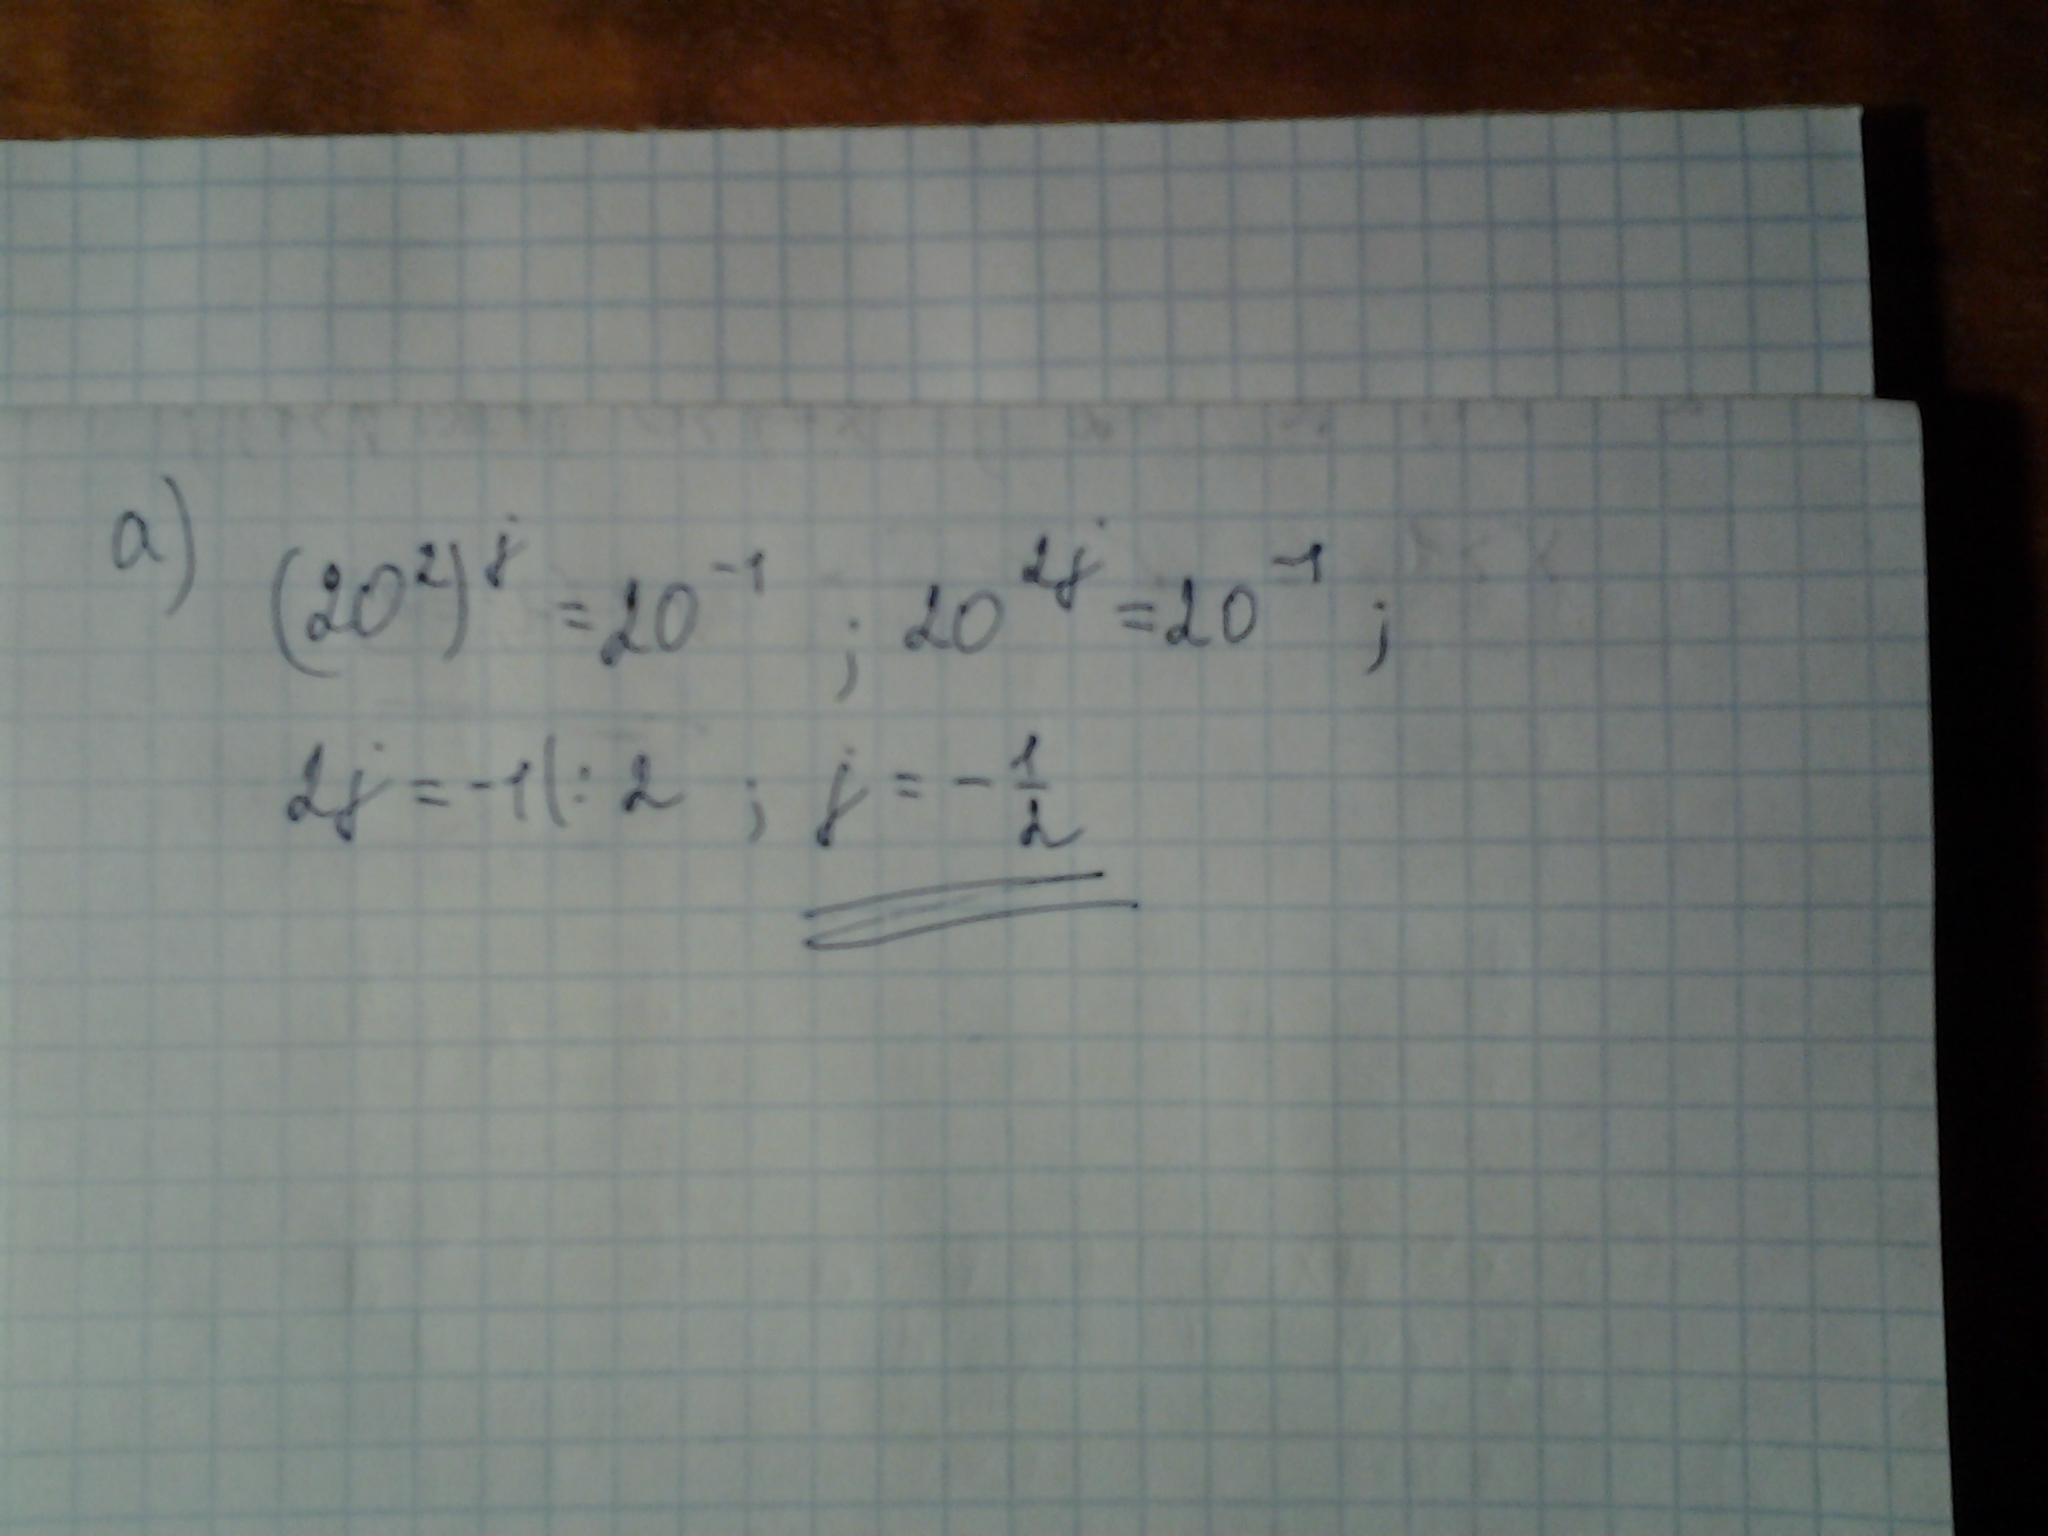 a) (20²)ʲ = 20⁻¹ ; 20²ʲ = 20⁻¹ ;
2j = -1 |: 2 ; j = - 1/2